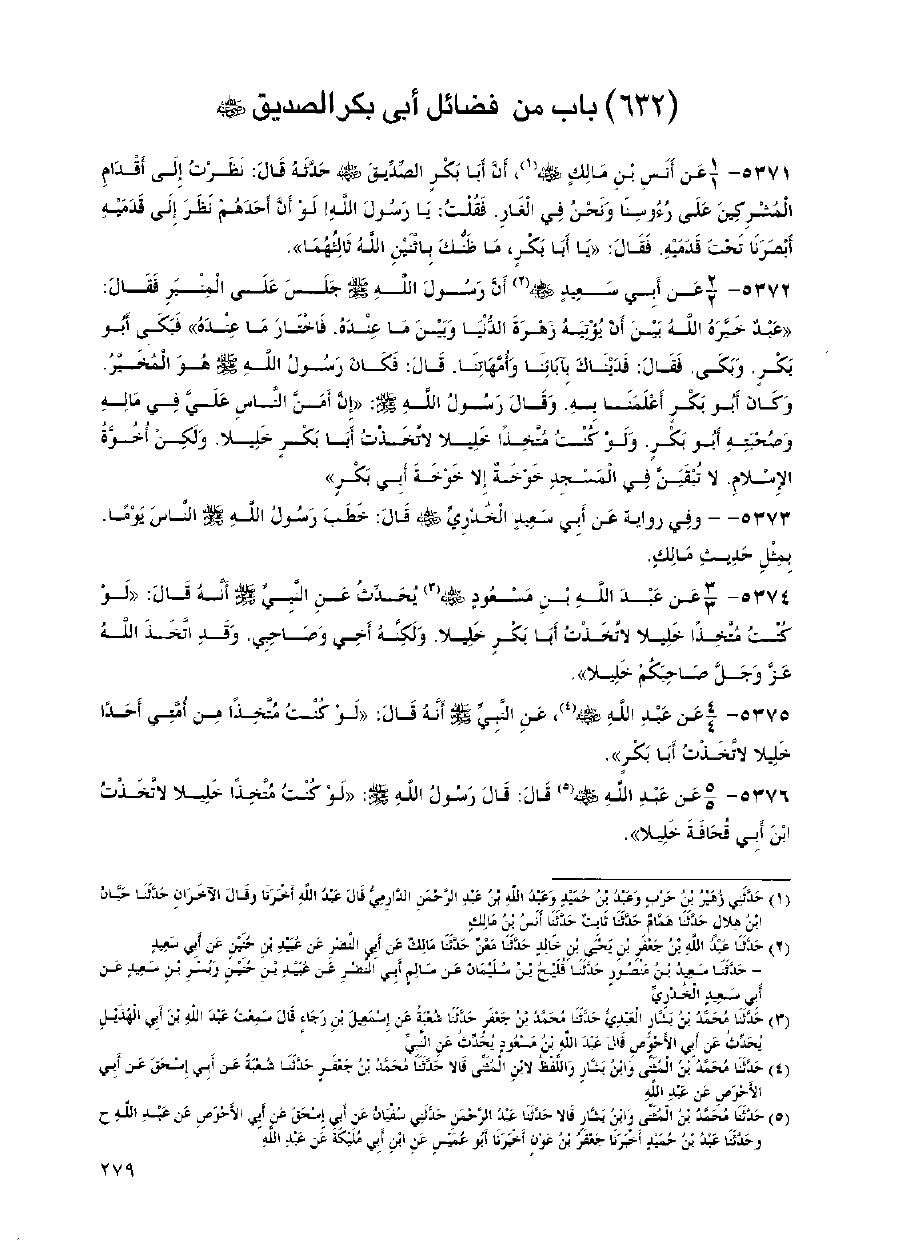 (٦٣٢) باب من فضائل أبى بكر الصديق ﷺ
٥٣٧١- ١/١ عَن أَنَسِ بْنِ مَالِكٍ ﷺ(١)، أَنَّ أَبَا بَكْرٍ الصِّدِّيقَ ﷺ حَدَّثَهُ قَالَ: نَظَرْتُ إِلَى أَقْدَامِ
الْمُشْرِكِينَ عَلَى رُءُوسِنَا وَنَحْنُ فِي الْغَارِ. فَقُلْتُ: يَا رَسُولَ اللَّهِ! لَوْ أَنَّ أَحَدَهُمْ نَظَرَ إِلَى قَدَمَيْهِ
أَبْصَرَنَا تَحْتَ قَدَمَيْهِ. فَقَالَ: «يَا أَبَا بَكْرٍ، مَا ظَنُّكَ بِاثْنَيْنِ اللَّهُ ثَالِثُهُمَا».
٥٣٧٢- ٢/٢ عَن أَبِي سَعِيدٍ ﷺ(٢) أَنَّ رَسُولَ اللَّهِ ﷺ جَلَسَ عَلَى الْمِنْبَرِ فَقَالَ:
«عَبْدٌ خَيَّرَهُ اللَّهُ بَيْنَ أَنْ يُؤْتِيَهُ زَهْرَةَ الدُّنْيَا وَبَيْنَ مَا عِنْدَهُ. فَاخْتَارَ مَا عِنْدَهُ» فَبَكَى أَبُو
بَكْرٍ. وَبَكَى. فَقَالَ: فَدَيْنَاكَ بِآبَائِنَا وَأُمَّهَاتِنَا. قَالَ: فَكَانَ رَسُولُ اللَّهِ ﷺ هُوَ الْمُخَيَّرُ.
وَكَانَ أَبُو بَكْرٍ أَعْلَمَنَا بِهِ. وَقَالَ رَسُولُ اللَّهِ ﷺ: «إِنَّ أَمَنَّ النَّاسِ عَلَيَّ فِي مَالِهِ
وَصُحْبَتِهِ أَبُو بَكْرٍ. وَلَوْ كُنْتُ مُتَّخِذًا خَلِيلا لاتَّخَذْتُ أَبَا بَكْرٍ خَلِيلا. وَلَكِنْ أُخُوَّةُ
الإِسْلامِ. لا تُبْقَيَنَّ فِي الْمَسْجِدِ خَوْخَةٌ إِلا خَوْخَةَ أَبِي بَكْرٍ»
٥٣٧٣- - وفِي رواية عَن أَبِي سَعِيدٍ الْخُدْرِيِّ ﷺ قَالَ: خَطَبَ رَسُولُ اللَّهِ ﷺ النَّاسَ يَوْمًا.
بِمِثْلِ حَدِيثِ مَالِكٍ.
٥٣٧٤- ٣/٣ عَن عَبْدَ اللَّهِ بْنِ مَسْعُودٍ ﷺ(٣) يُحَدِّثُ عَنِ النَّبِيِّ ﷺ أَنَّهُ قَالَ: «لَوْ
كُنْتُ مُتَّخِذًا خَلِيلا لاتَّخَذْتُ أَبَا بَكْرٍ خَلِيلا. وَلَكِنَّهُ أَخِي وَصَاحِبِي. وَقَدِ اتَّخَذَ اللَّهُ
عَزَّ وَجَلَّ صَاحِبَكُمْ خَلِيلا».
٥٣٧٥- ٤/٤ عَن عَبْدِ اللَّهِ ﷺ(٤)، عَنِ النَّبِيِّ ﷺ أَنَّهُ قَالَ: «لَوْ كُنْتُ مُتَّخِذًا مِن أُمَّتِي أَحَدًا
خَلِيلا لاتَّخَذْتُ أَبَا بَكْرٍ».
٥٣٧٦- ٥/٥ عَن عَبْدِ اللَّهِ ﷺ(٥) قَالَ: قَالَ رَسُولُ اللَّهِ ﷺ: «لَوْ كُنْتُ مُتَّخِذًا خَلِيلا لاتَّخَذْتُ
ابْنَ أَبِي قُحَافَةَ خَلِيلا».
(١) حَدَّثَنِي زُهَيْرُ بْنُ حَرْبٍ وَعَبْدُ بْنُ حُمَيْدٍ وَعَبْدُ اللهِ بْنُ عَبْدِ الرَّحْمَنِ الدَّارِمِيُّ قَالَ عَبْدُ اللهِ أَخْبَرَنَا وَقَالَ الآخَرَانِ حَدَّثَنَا حَبَّانُ
ابْنُ هِلالٍ حَدَّثَنَا هَمَّامٌ حَدَّثَنَا ثَابِتٌ حَدَّثَنَا أَنَسُ بْنُ مَالِكٍ
(٢) حَدَّثَنَا عَبْدُ اللَّهِ بْنُ جَعْفَرِ بْنِ يَحْيَى بْنِ خَالِدٍ حَدَّثَنَا مَعْنٌ حَدَّثَنَا مَالِكٌ عَن أَبِي النَّضْرِ عَن عُبَيْدِ بْنِ حُنَيْنٍ عَن أَبِي سَعِيدٍ
- حَدَّثَنَا سَعِيدُ بْنُ مَنْصُورٍ حَدَّثَنَا فُلَيْحُ بْنُ سُلَيْمَانَ عَن سَالِمٍ أَبِي النَّضْرِ عَن عُبَيْدِ بْنِ حُنَيْنٍ وَبُسْرِ بْنِ سَعِيدٍ عَن
أَبِي سَعِيدٍ الْخُدْرِيِّ
(٣) حَدَّثَنَا مُحَمَّدُ بْنُ بَشَّارٍ الْعَبْدِيُّ حَدَّثَنَا مُحَمَّدُ بْنُ جَعْفَرٍ حَدَّثَنَا شُعْبَةُ عَن إِسْمَعِيلَ بْنِ رَجَاءٍ قَالَ سَمِعْتُ عَبْدَ اللهِ بْنَ أَبِي الْهُذَيْلِ
يُحَدِّثُ عَن أَبِي الأَحْوَصِ قَالَ عَبْدَ اللهِ بْنُ مَسْعُودٍ يُحَدِّثُ عَنِ النَّبِيِّ
(٤) حَدَّثَنَا مُحَمَّدُ بْنُ الْمُثَنَّى وَابْنُ بَشَّارٍ وَاللَّفْظُ لابْنِ الْمُثَنَّى قَالا حَدَّثَنَا مُحَمَّدُ بْنُ جَعْفَرٍ حَدَّثَنَا شُعْبَةُ عَن أَبِي إِسْحَقَ عَن أَبِي
الأَحْوَصِ عَن عَبْدِ اللهِ
(٥) حَدَّثَنَا مُحَمَّدُ بْنُ الْمُثَنَّى وَابْنُ بَشَّارٍ قَالا حَدَّثَنَا عَبْدُ الرَّحْمَنِ حَدَّثَنِي سُفْيَانُ عَن أَبِي إِسْحَقَ عَن أَبِي الأَحْوَصِ عَن عَبْدِ اللَّهِ ح
وحَدَّثَنَا عَبْدُ بْنُ حُمَيْدٍ أَخْبَرَنَا جَعْفَرُ بْنُ عَوْنٍ أَخْبَرَنَا أَبُو عُمَيْسٍ عَن ابْنِ أَبِي مُلَيْكَةَ عَن عَبْدِ اللهِ
٢٧٩